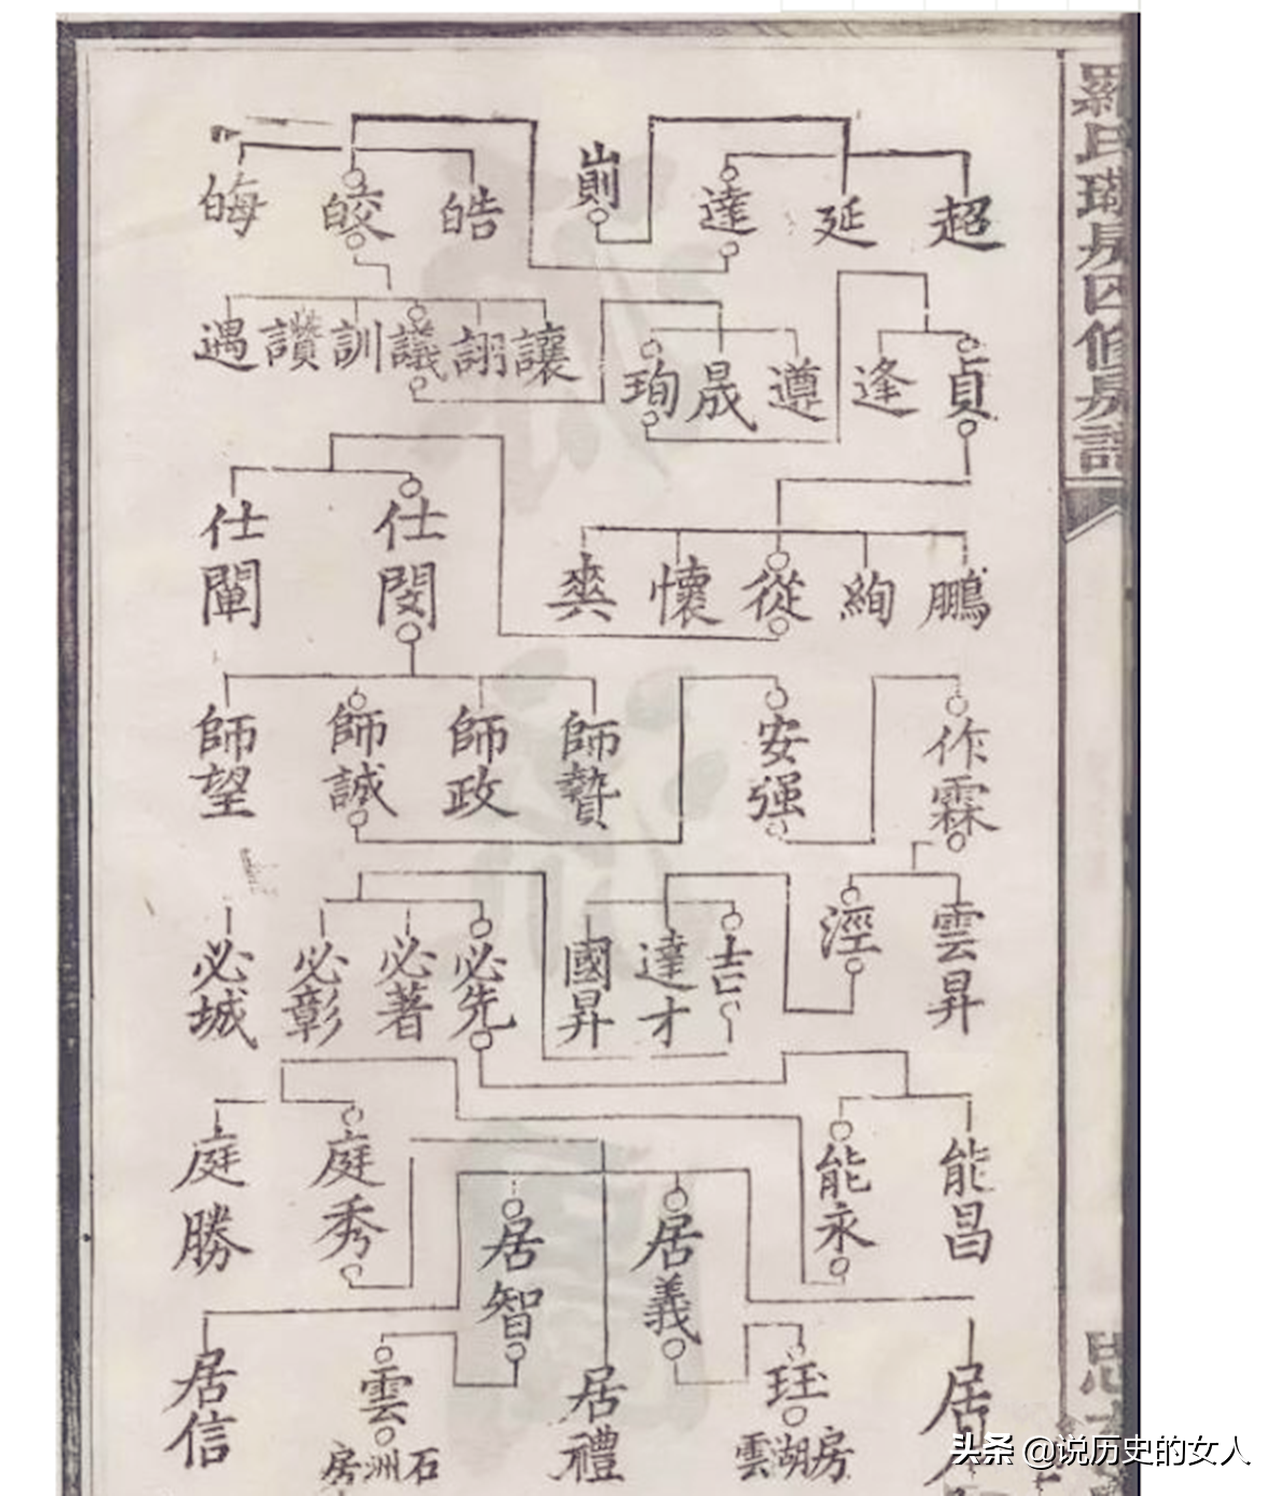 羅氏
房譜
超
延
達
崱
皓
皎
晦
讓
詡
議
訓
讚
遇
貞
逢
遵
晟
珣
鵬
絢
從
懷
奭
仕閔
仕闡
作霖
安强
師贊
師政
師誠
師望
雲昇
涇
吉
達才
國昇
必先
必著
必彰
必城
能昌
能永
庭秀
庭勝
居
居義
居智
居禮
居信
珏
雲湖房
雲
石洲房
头条 @说历史的女人